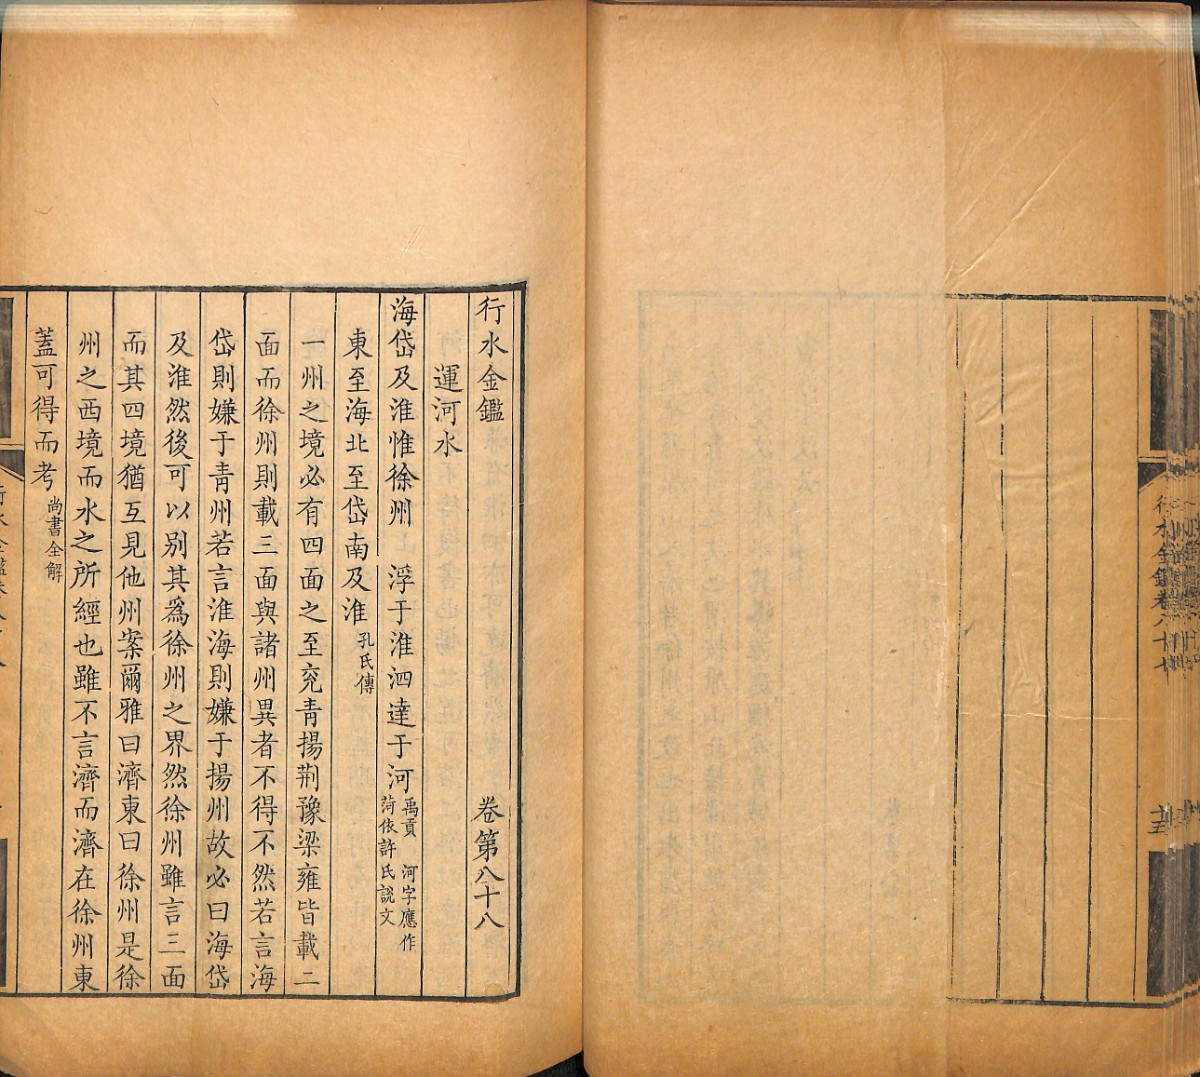 行水金鑑卷八十七
十五
行水金鑑 卷第八十八
運河水
海岱及淮惟徐州 浮于淮泗達于河 禹貢 河字應作菏依許氏說文
東至海北至岱南及淮 孔氏傳
一州之境必有四面之至兖青揚荆豫梁雍皆載二
面而徐州則載三面與諸州異者不得不然若言海
岱則嫌于青州若言淮海則嫌于揚州故必曰海岱
及淮然後可以別其爲徐州之界然徐州雖言三面
而其四境猶互見他州案爾雅曰濟東曰徐州是徐
州之西境而水之所經也雖不言濟而濟在徐州東
蓋可得而考 尚書全解